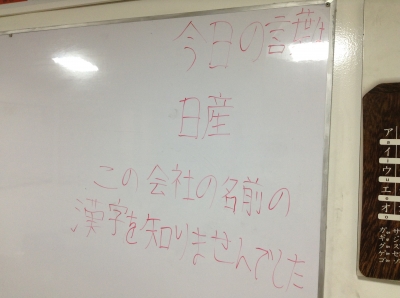 今日の言葉
日産
この会社の名前の
漢字を知りませんでした
ア
イ
ウ
エ
オ
ガギグゲゴ
サシスセソ